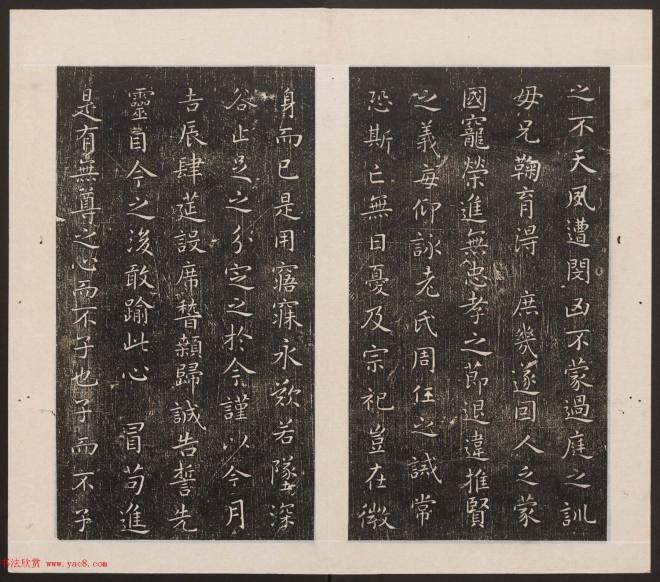 之不天夙遭閔凶不蒙過庭之訓
毋兄鞠育得 庶幾遂因人之蒙
國寵榮進無忠孝之節退違推賢
之義每仰詠老氏周任之誡常
恐斯亡無日憂及宗祀豈在微
身而已是用寤寐永歎若墜深
谷止足之分定之於今謹以今月
吉辰肆筵設席稽顙歸誠告誓先
靈自今之後敢踰此心 冒苟進
是有無尊之心而不子也子而不子
书法欣赏 www.yac8.com